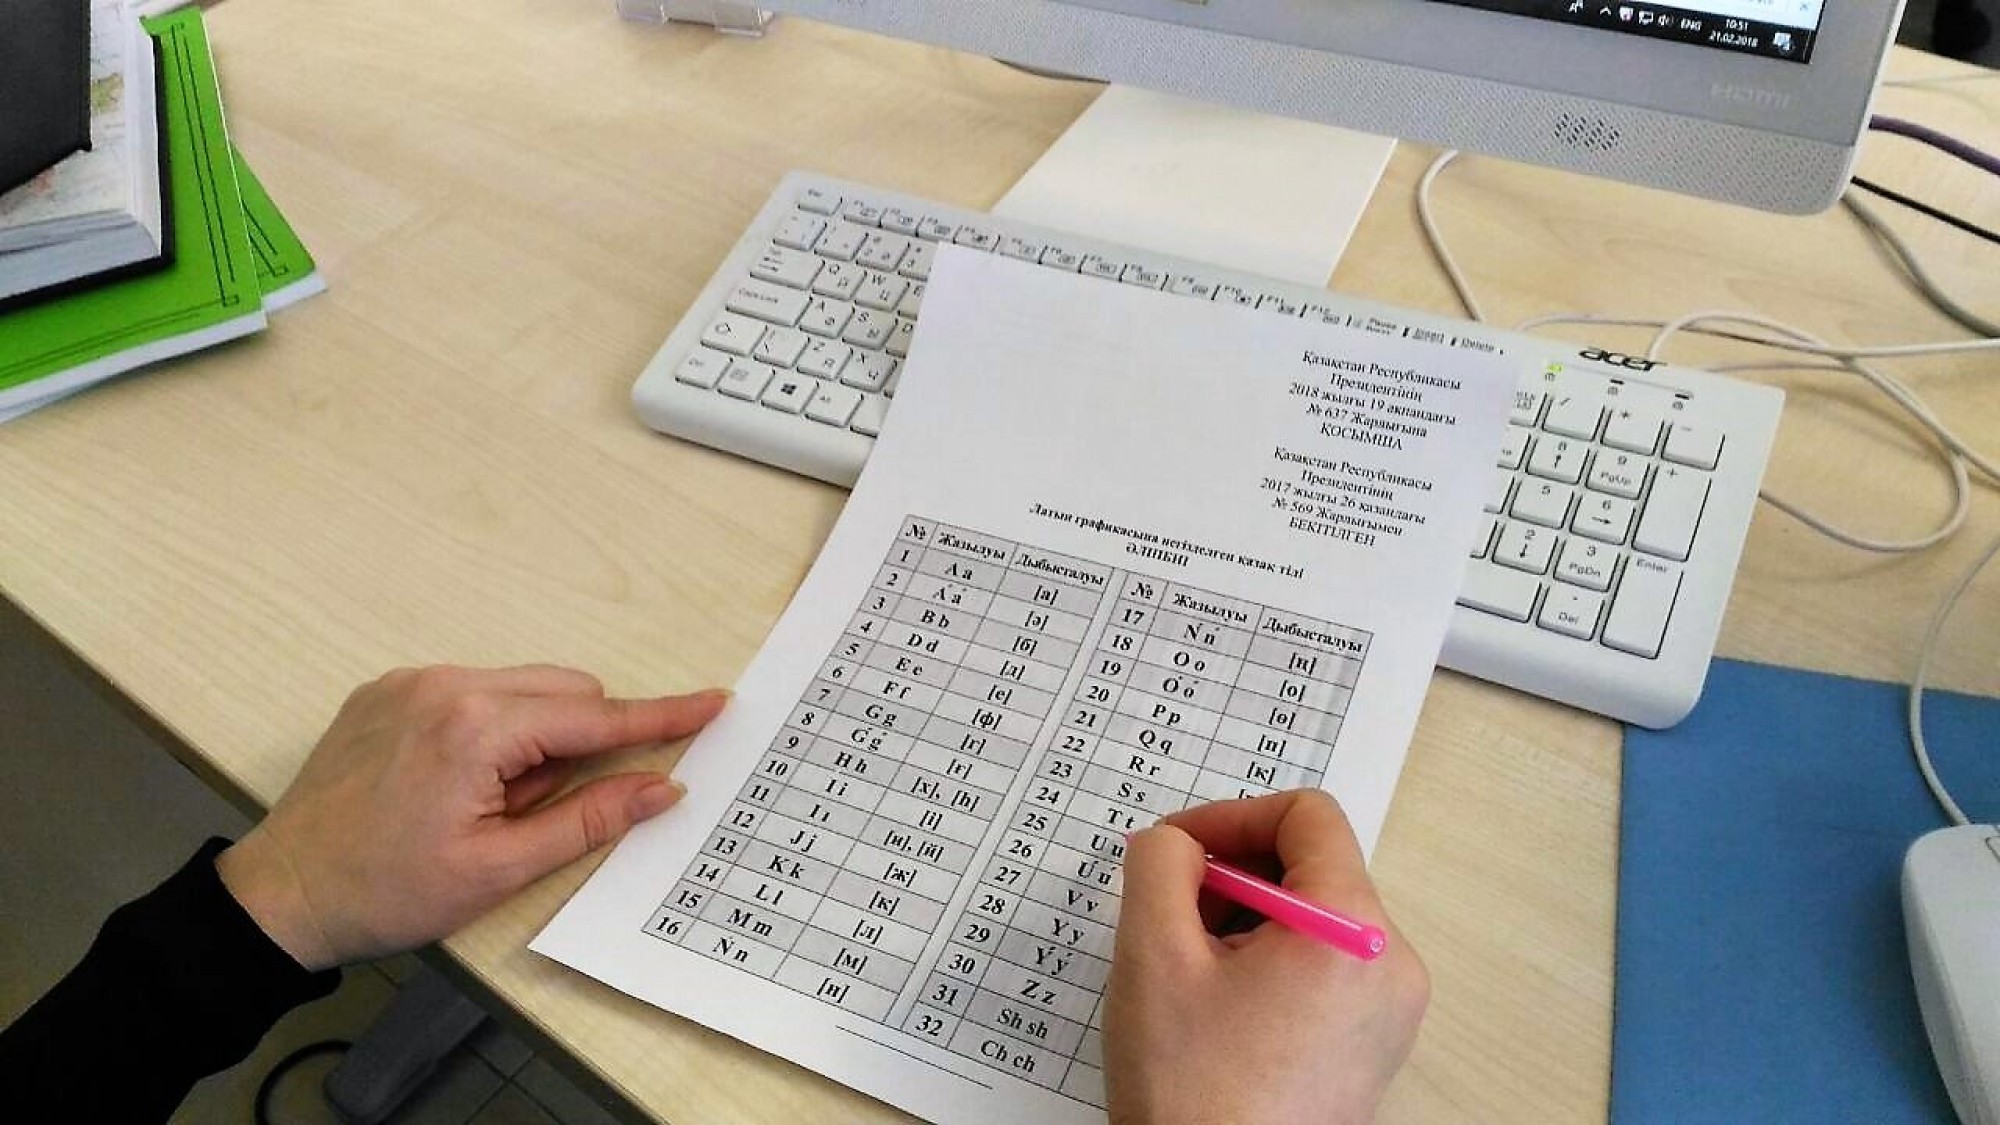 ENG
10:51
21.02.2018
acer
Қазақстан Республикасы
Президентінің
2018 жылғы 19 ақпандағы
№ 637 Жарлығына
ҚОСЫМША
Қазақстан Республикасы
Президентінің
2017 жылғы 26 қазандағы
№ 569 Жарлығымен
БЕКІТІЛГЕН
Латын графикасына негізделген қазақ тілі
ӘЛІПБИІ
№ Жазылуы Дыбысталуы
1 A a [а]
2 Á á [ә]
3 B b [б]
4 D d [д]
5 E e [е]
6 F f [ф]
7 G g [г]
8 Ǵ ǵ [ғ]
9 H h [х], [һ]
10 I i [і]
11 I ı [и], [й]
12 J j [ж]
13 K k [к]
14 L l [л]
15 M m [м]
16 N n [н]
№ Жазылуы Дыбысталуы
17 Ń ń [ң]
18 O o [о]
19 Ó ó [ө]
20 P p [п]
21 Q q [қ]
22 R r
23 S s
24 T t
25 U u
26 Ú ú
27 V v
28 Y y
29 Ý ý
30 Z z
31 Sh sh
32 Ch ch
Pause
Insert
Delete
Caps Lock
Q Й W Ц E
A Ф S Ы D
Z Я X Ч
8 9 PgUp
5 6
2 3 PgDn
Enter
Del